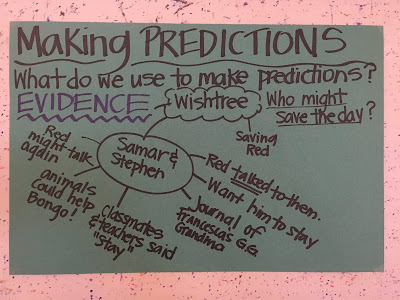 Making PREDICTIONS
What do we use to make predictions?
EVIDENCE
Wishtree
Who might
save the day?
Saving
Red
Samar &
Stephen
Red
might talk
again
animals
could help
Bongo!
Classmates
& teachers said
"stay"
Journal of
Francesca's G.G.
Grandma
Want him to stay
Red talked to them.